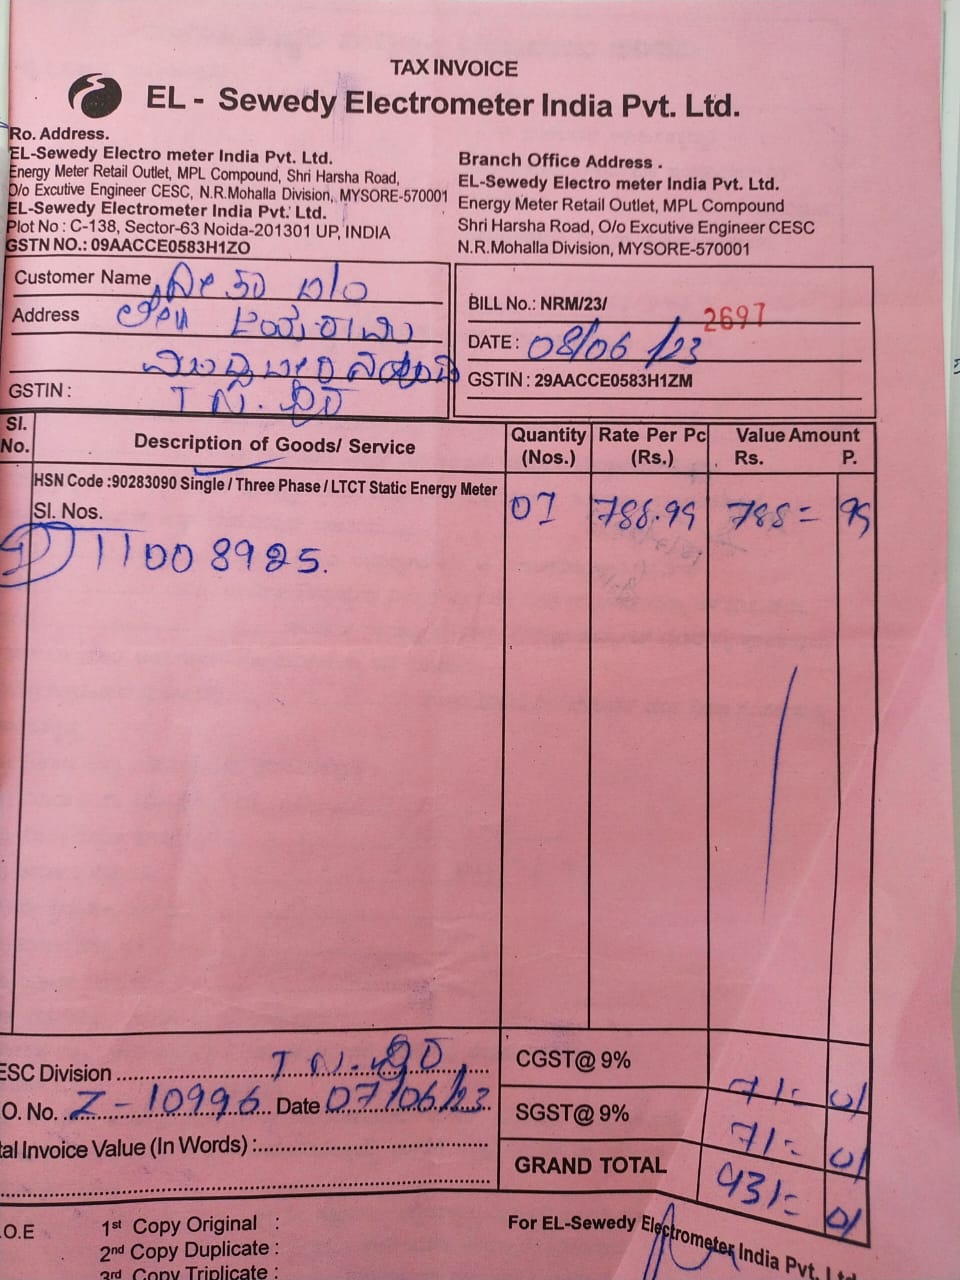 TAX INVOICE
EL - Sewedy Electrometer India Pvt. Ltd.
Ro. Address.
EL-Sewedy Electro meter India Pvt. Ltd.
Energy Meter Retail Outlet, MPL Compound, Shri Harsha Road,
O/o Excutive Engineer CESC, N.R.Mohalla Division, MYSORE-570001
EL-Sewedy Electrometer India Pvt. Ltd.
Plot No : C-138, Sector-63 Noida-201301 UP, INDIA
GSTN NO.: 09AACCE0583H1ZO
Branch Office Address .
EL-Sewedy Electro meter India Pvt. Ltd.
Energy Meter Retail Outlet, MPL Compound
Shri Harsha Road, O/o Excutive Engineer CESC
N.R.Mohalla Division, MYSORE-570001
Customer Name
Address
GSTIN :
BILL No.: NRM/23/ 2697
DATE : 08/06/23
GSTIN : 29AACCE0583H1ZM
Sl. No. Description of Goods/ Service Quantity (Nos.) Rate Per Pc (Rs.) Value Amount Rs. P.
HSN Code :90283090 Single / Three Phase / LTCT Static Energy Meter
Sl. Nos. 01 788.99 788= 99
1 11008925.
ESC Division
O. No. Z-10996 Date 07/06/23
tal Invoice Value (In Words) :
CGST@ 9% 71= 01
SGST@ 9% 71= 01
GRAND TOTAL 931= 01
.O.E
1st Copy Original :
2nd Copy Duplicate :
3rd Copy Triplicate :
For EL-Sewedy Electrometer India Pvt. Ltd